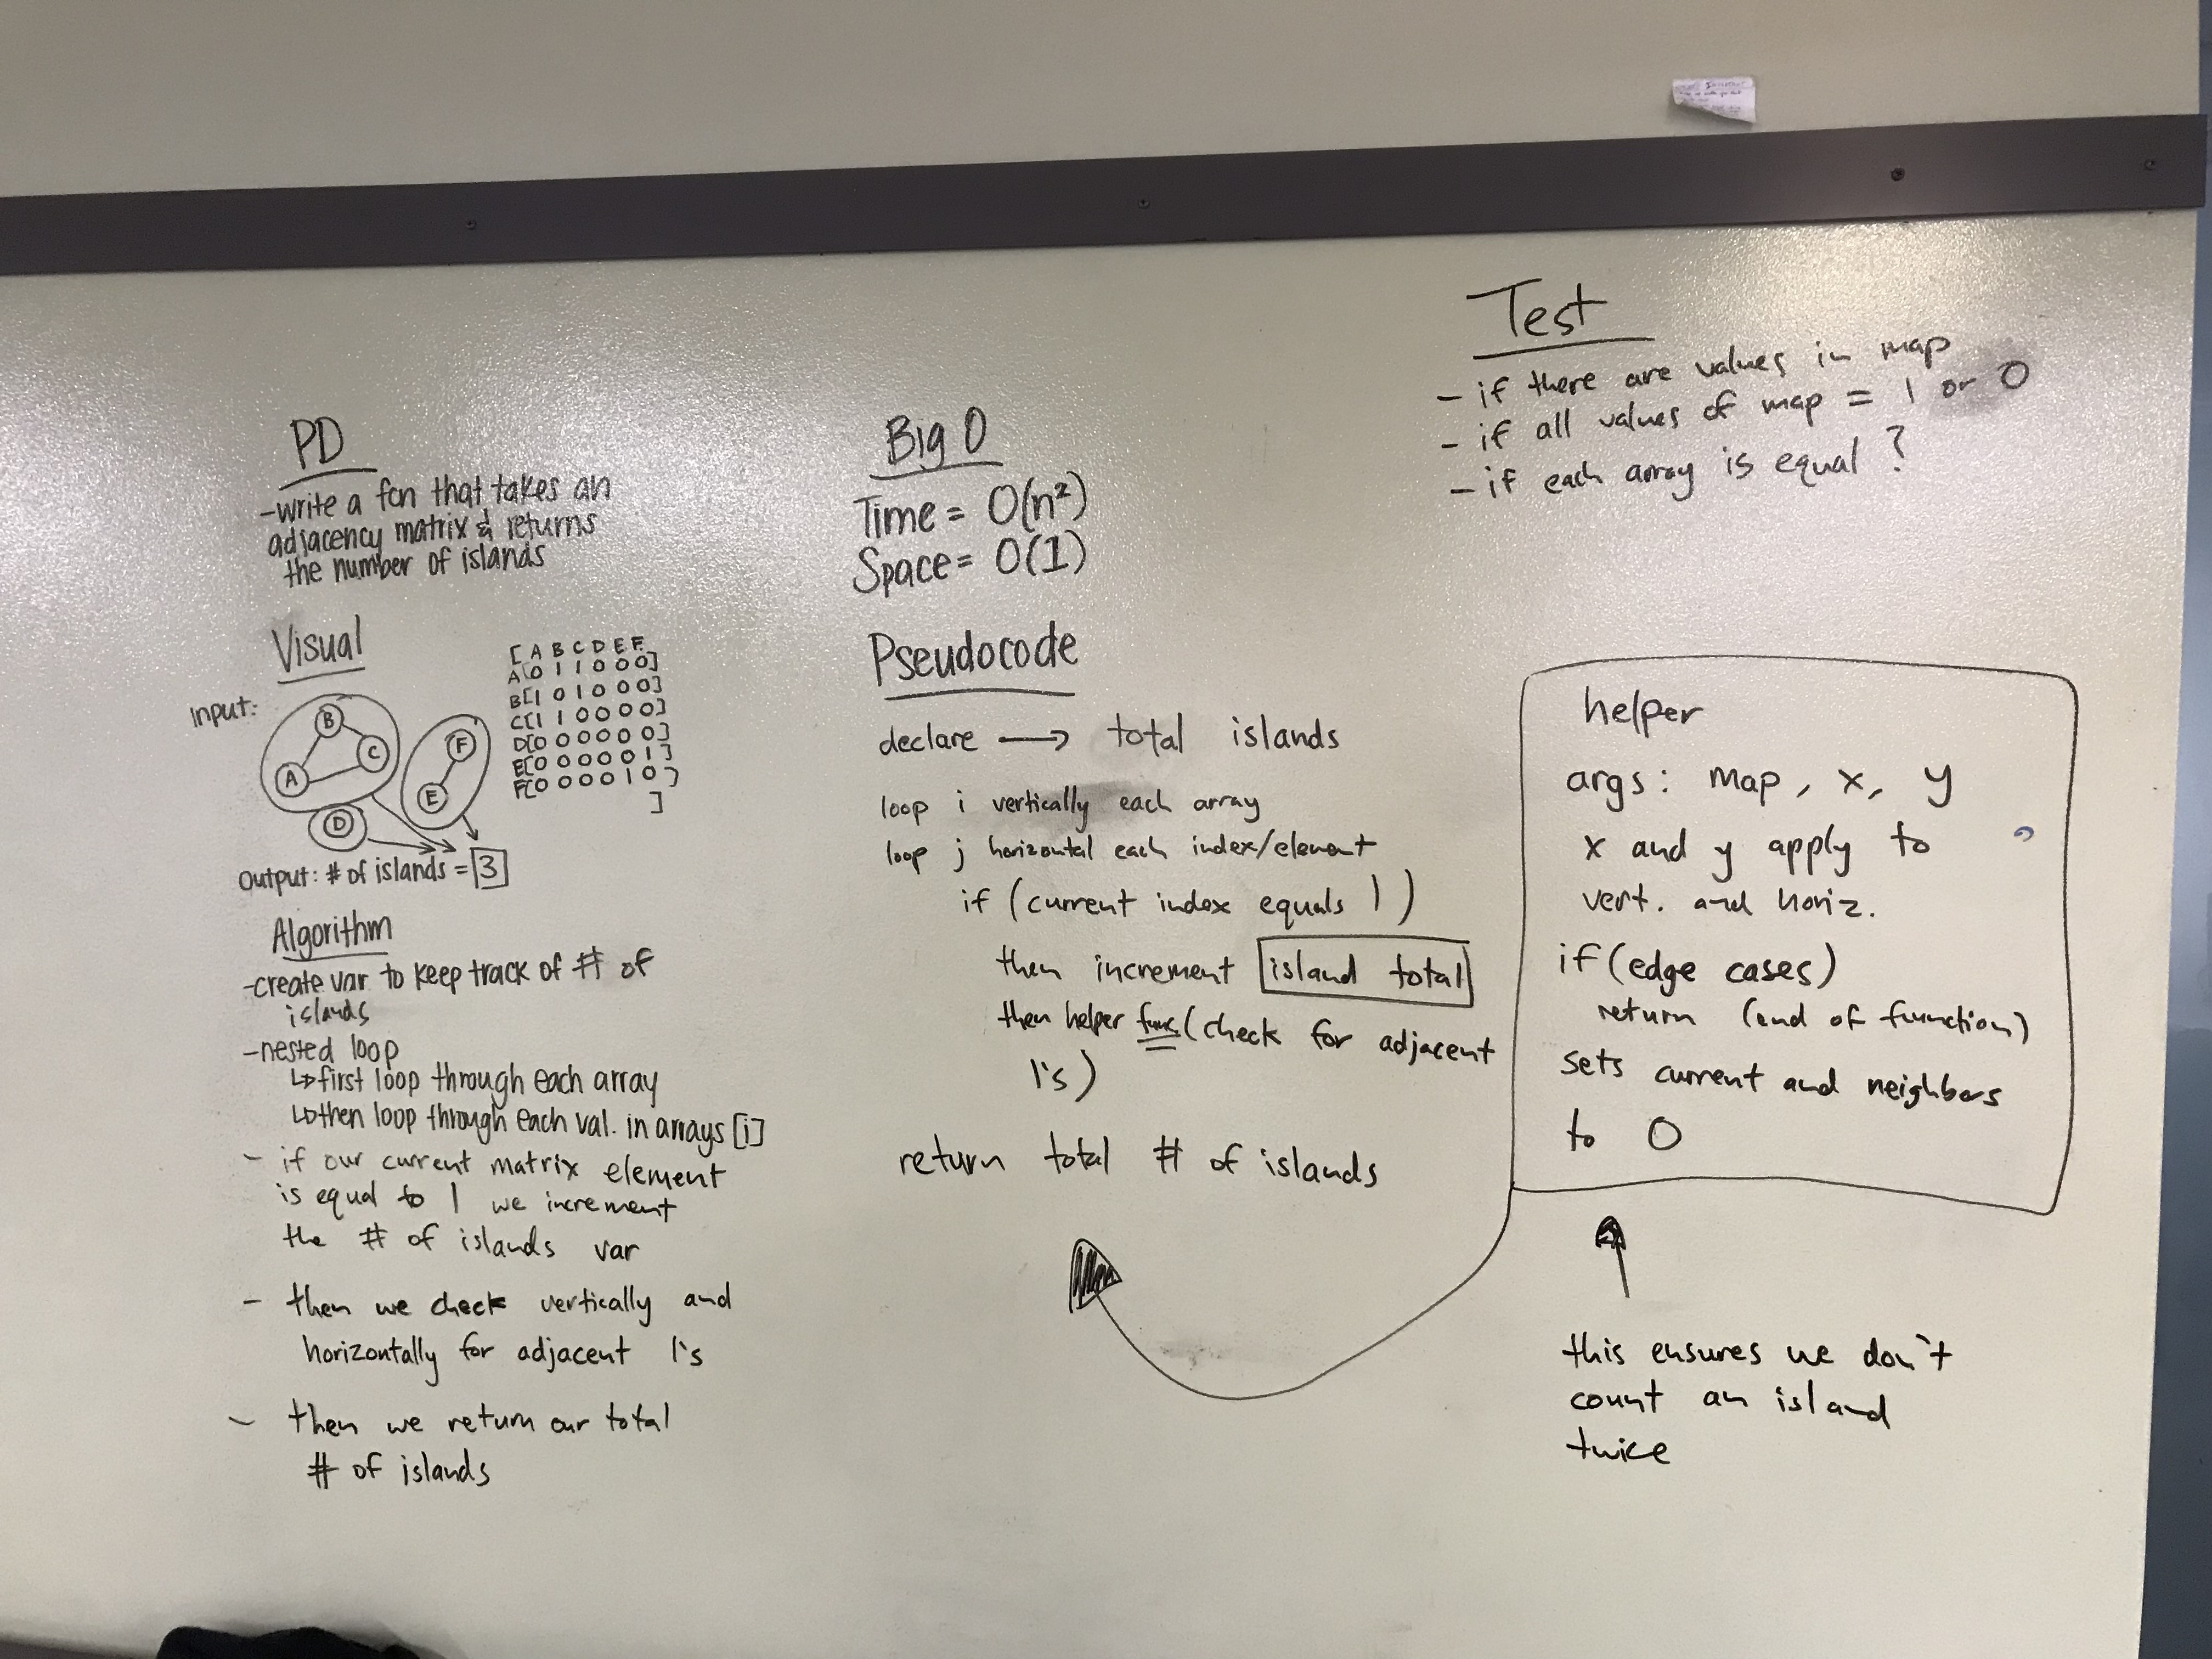 PD
-write a fcn that takes an
adjacency matrix & returns
the number of islands
Visual
Input:
B
C
A
F
E
D
[ A B C D E F
A[0 1 1 0 0 0]
B[1 0 1 0 0 0]
C[1 1 0 0 0 0]
D[0 0 0 0 0 0]
E[0 0 0 0 0 1]
F[0 0 0 0 1 0]
]
Output: # of islands = 3
Algorithm
-create var to keep track of # of
islands
-nested loop
↳first loop through each array
↳then loop through each val. in arrays [i]
- if our current matrix element
is equal to 1 we increment
the # of islands var
- then we check vertically and
horizontally for adjacent 1's
- then we return our total
# of islands
Big O
Time = O(n²)
Space = O(1)
Pseudocode
declare → total islands
loop i vertically each array
loop j horizontal each index/element
if (current index equals 1)
then increment island total
then helper func (check for adjacent
1's)
return total # of islands
Test
- if there are values in map
- if all values of map = 1 or 0
- if each array is equal ?
helper
args: map, x, y
x and y apply to
vert. and horiz.
if (edge cases)
return (end of function)
sets current and neighbors
to 0
this ensures we don't
count an island
twice